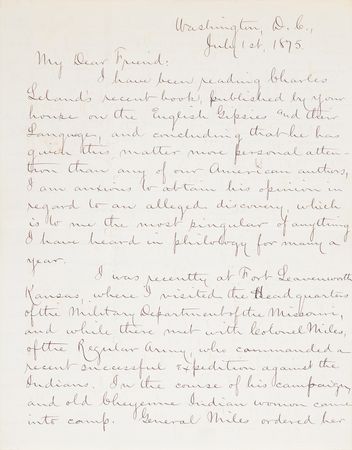 Washington, D.C.,
July 1st, 1875.
My Dear Friend:
I have been reading Charles
Leland's recent book, published by your
house on the English Gipsies and their
Language, and concluding that he has
given this matter more personal atten-
tion than any of our American authors,
I am anxious to obtain his opinion in
regard to an alleged discovery, which
is to me the most singular of anything
I have heard in philology for many a
year.
I was recently at Fort Leavenworth
Kansas, where I visited the Headquarters
of the Military Department of the Missouri,
and while there met with Colonel Miles,
of the Regular Army, who commanded a
recent successful expedition against the
Indians. In the course of his campaign,
and old Cheyenne Indian woman came
into camp. General Miles ordered her